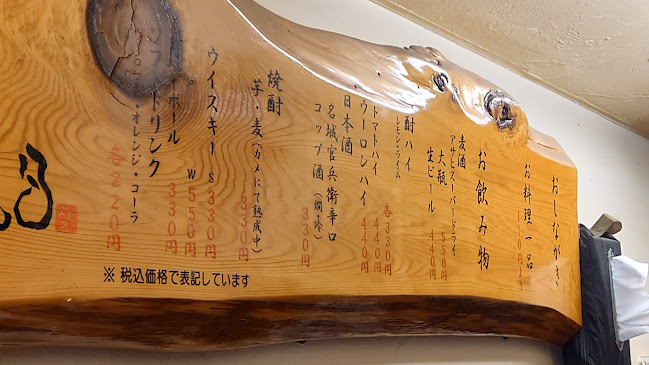 おしながき
お料理一品
お飲み物
麦酒
アサヒスーパードライ
大瓶 550円
生ビール 440円
酎ハイ
レモン・ライム 各330円
トマトハイ 440円
ウーロンハイ 440円
日本酒
名城官兵衛辛口
コップ酒(燗・冷) 330円
焼酎
芋・麦(カメにて熟成中) 330円
ウイスキー s330円
w550円
ボール 330円
ドリンク
オレンジ・コーラ 各220円
※ 税込価格で表記しています